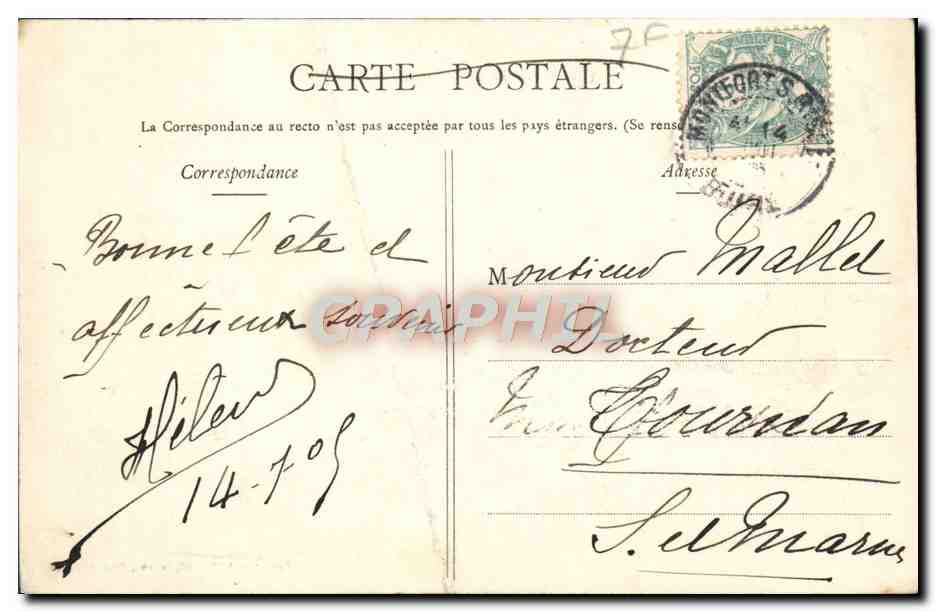 7F
CARTE POSTALE
La Correspondance au recto n'est pas acceptée par tous les pays étrangers. (Se rens
Correspondance
Adresse
MONTFORT S
14
Bonne fête et
affectueux souvenir
Hélène
14-7 05
Monsieur Mallet
Docteur
Tournan
S. et Marne
CPARTPHIL